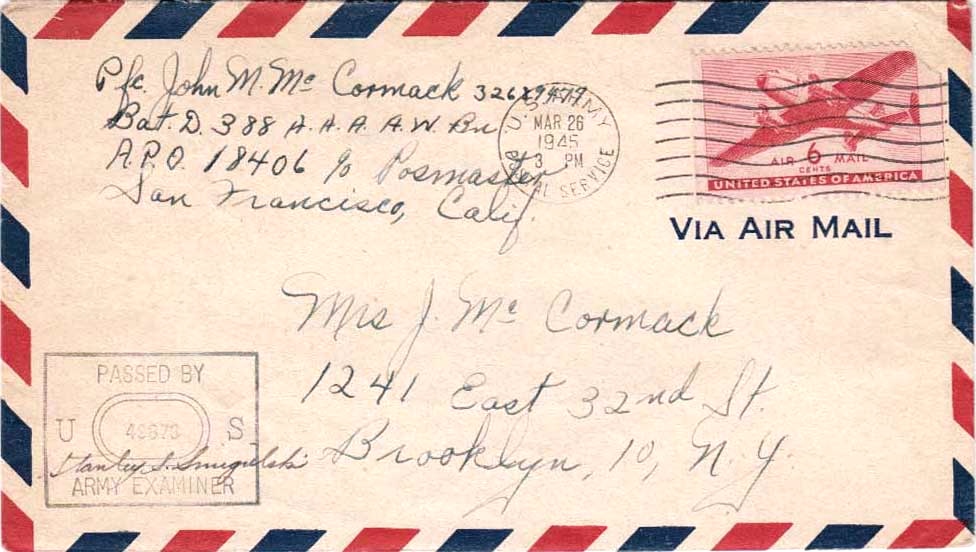 Pfc. John M. Mc Cormack
Bat. D. 388 A.A.A. A.W. Bn
A.P.O. 18406 c/o Posmaster
San Francisco, Calif.
U.S. ARMY
MAR 26
1945
3 PM
POSTAL SERVICE
AIR 6 MAIL
CENTS
UNITED STATES OF AMERICA
VIA AIR MAIL
Mrs J. Mc Cormack
1241 East 32nd St.
Brooklyn, 10, N.Y.
PASSED BY
U S
Stanley S. Smigielski
ARMY EXAMINER